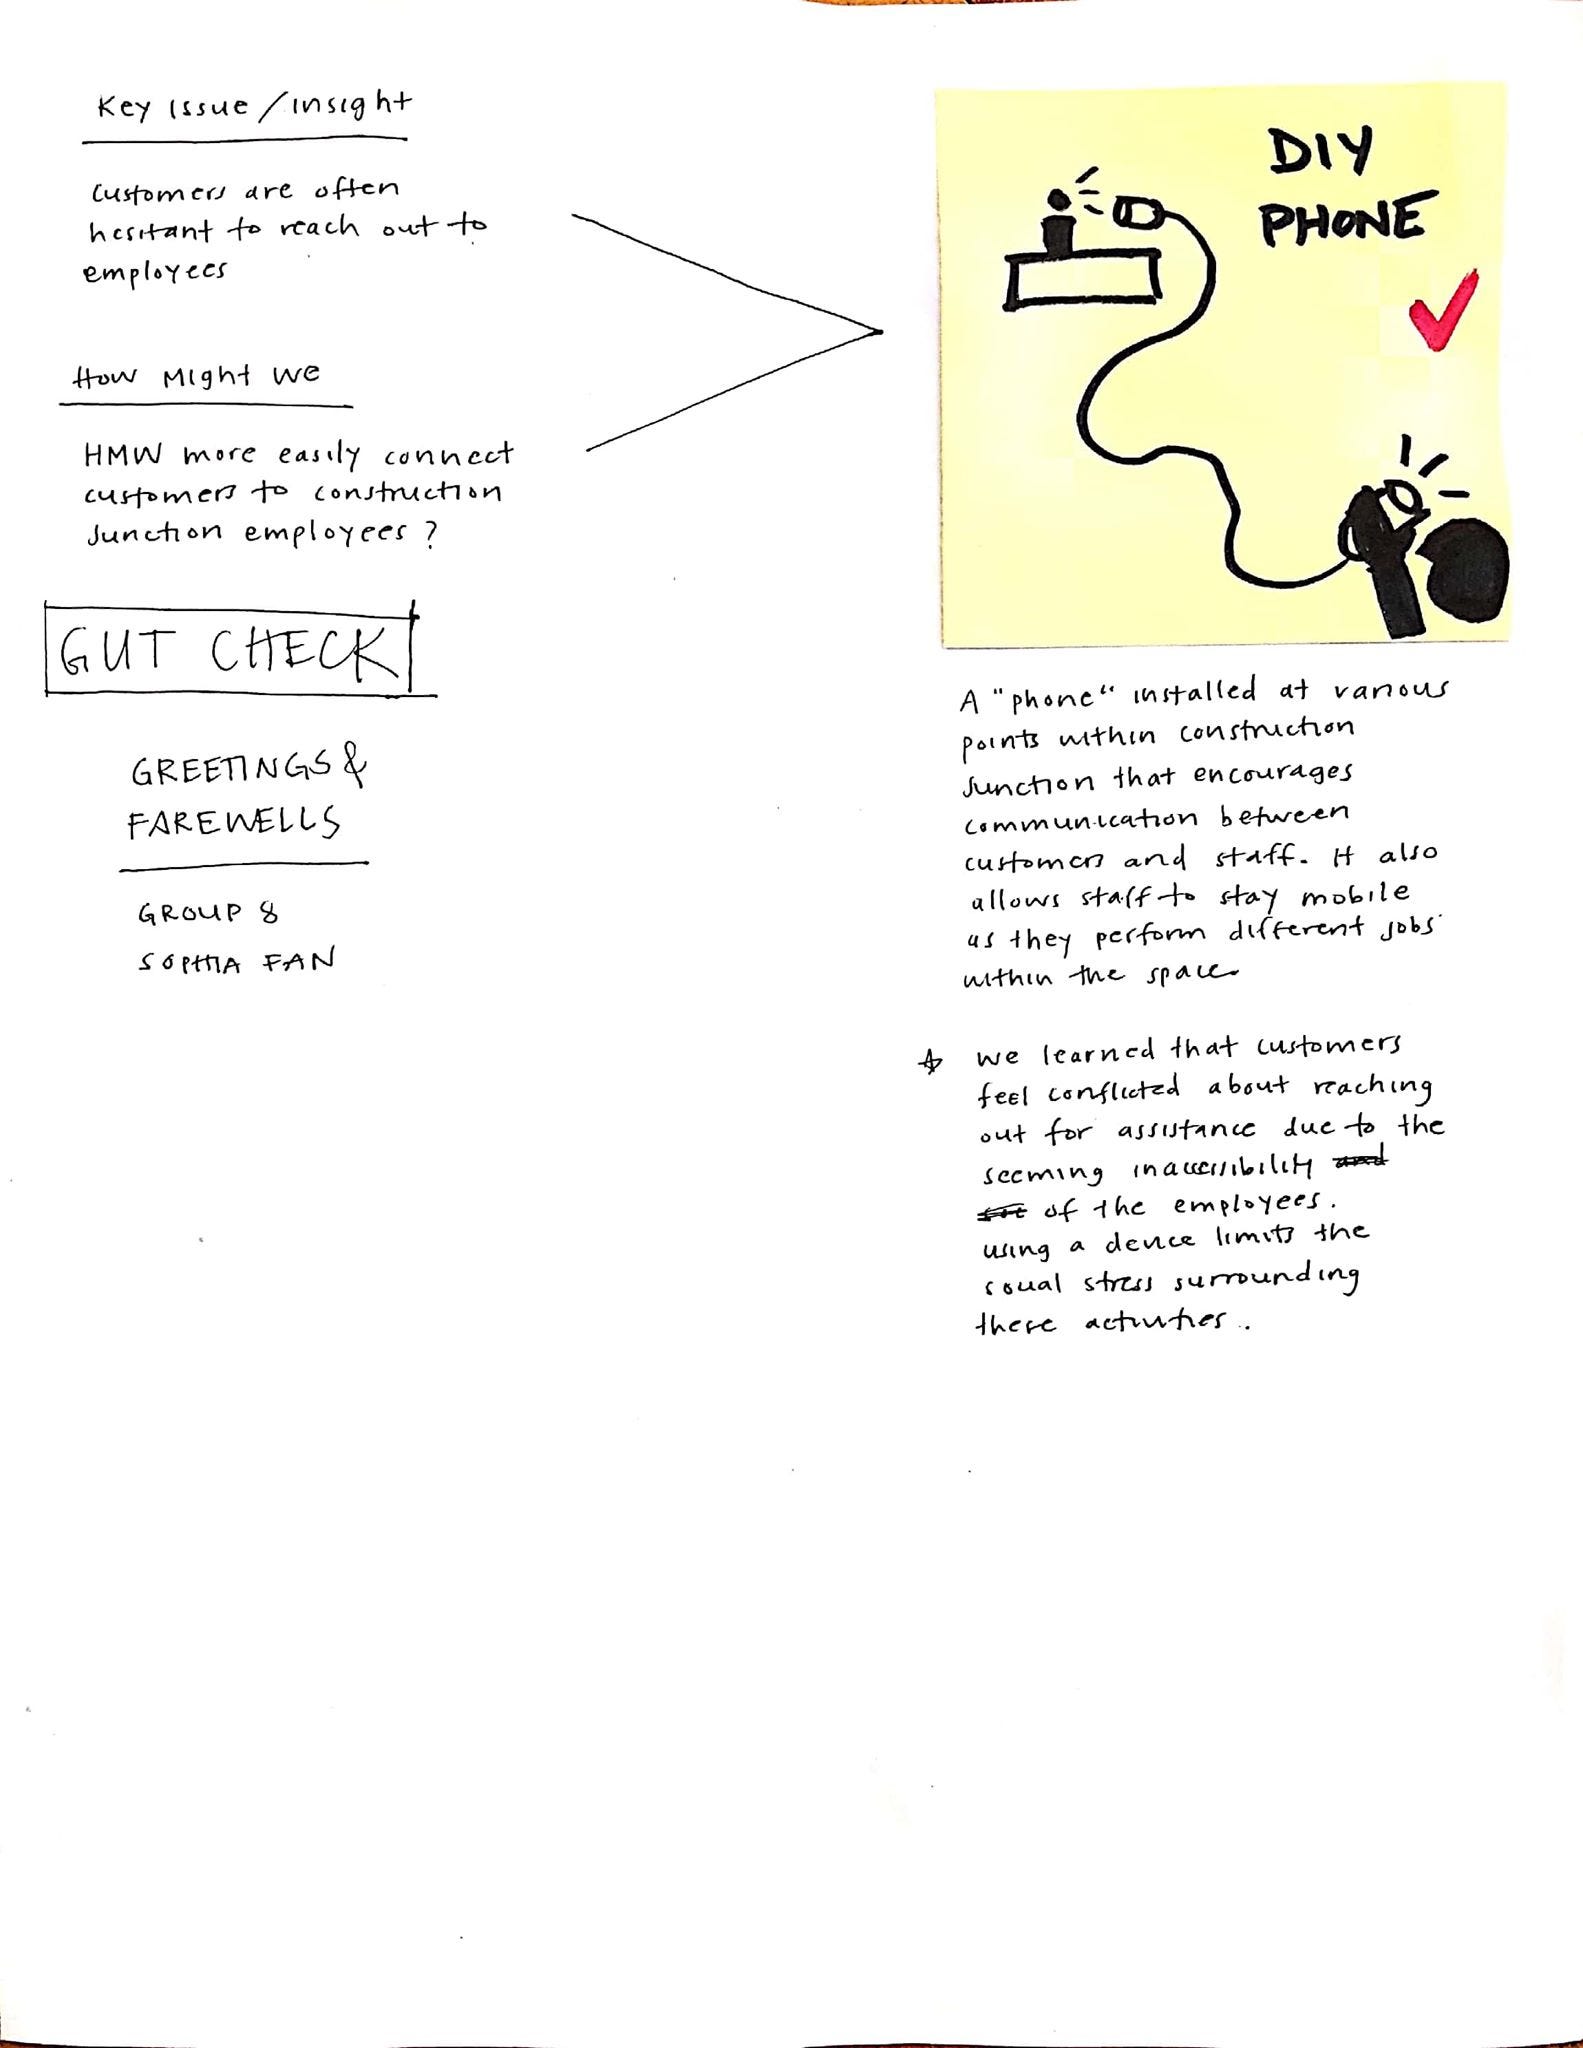 Key Issue/Insight
customers are often
hesitant to reach out to
employees
How Might We
HMW more easily connect
customers to construction
Junction employees?
GUT CHECK
GREETINGS &
FAREWELLS
GROUP 8
SOPHIA FAN
DIY
PHONE
A "phone" installed at various
points within construction
Junction that encourages
communication between
customers and staff. It also
allows staff to stay mobile
as they perform different jobs
within the space.
we learned that customers
feel conflicted about reaching
out for assistance due to the
seeming inaccessibility and
of the employees.
using a device limits the
social stress surrounding
these activities.